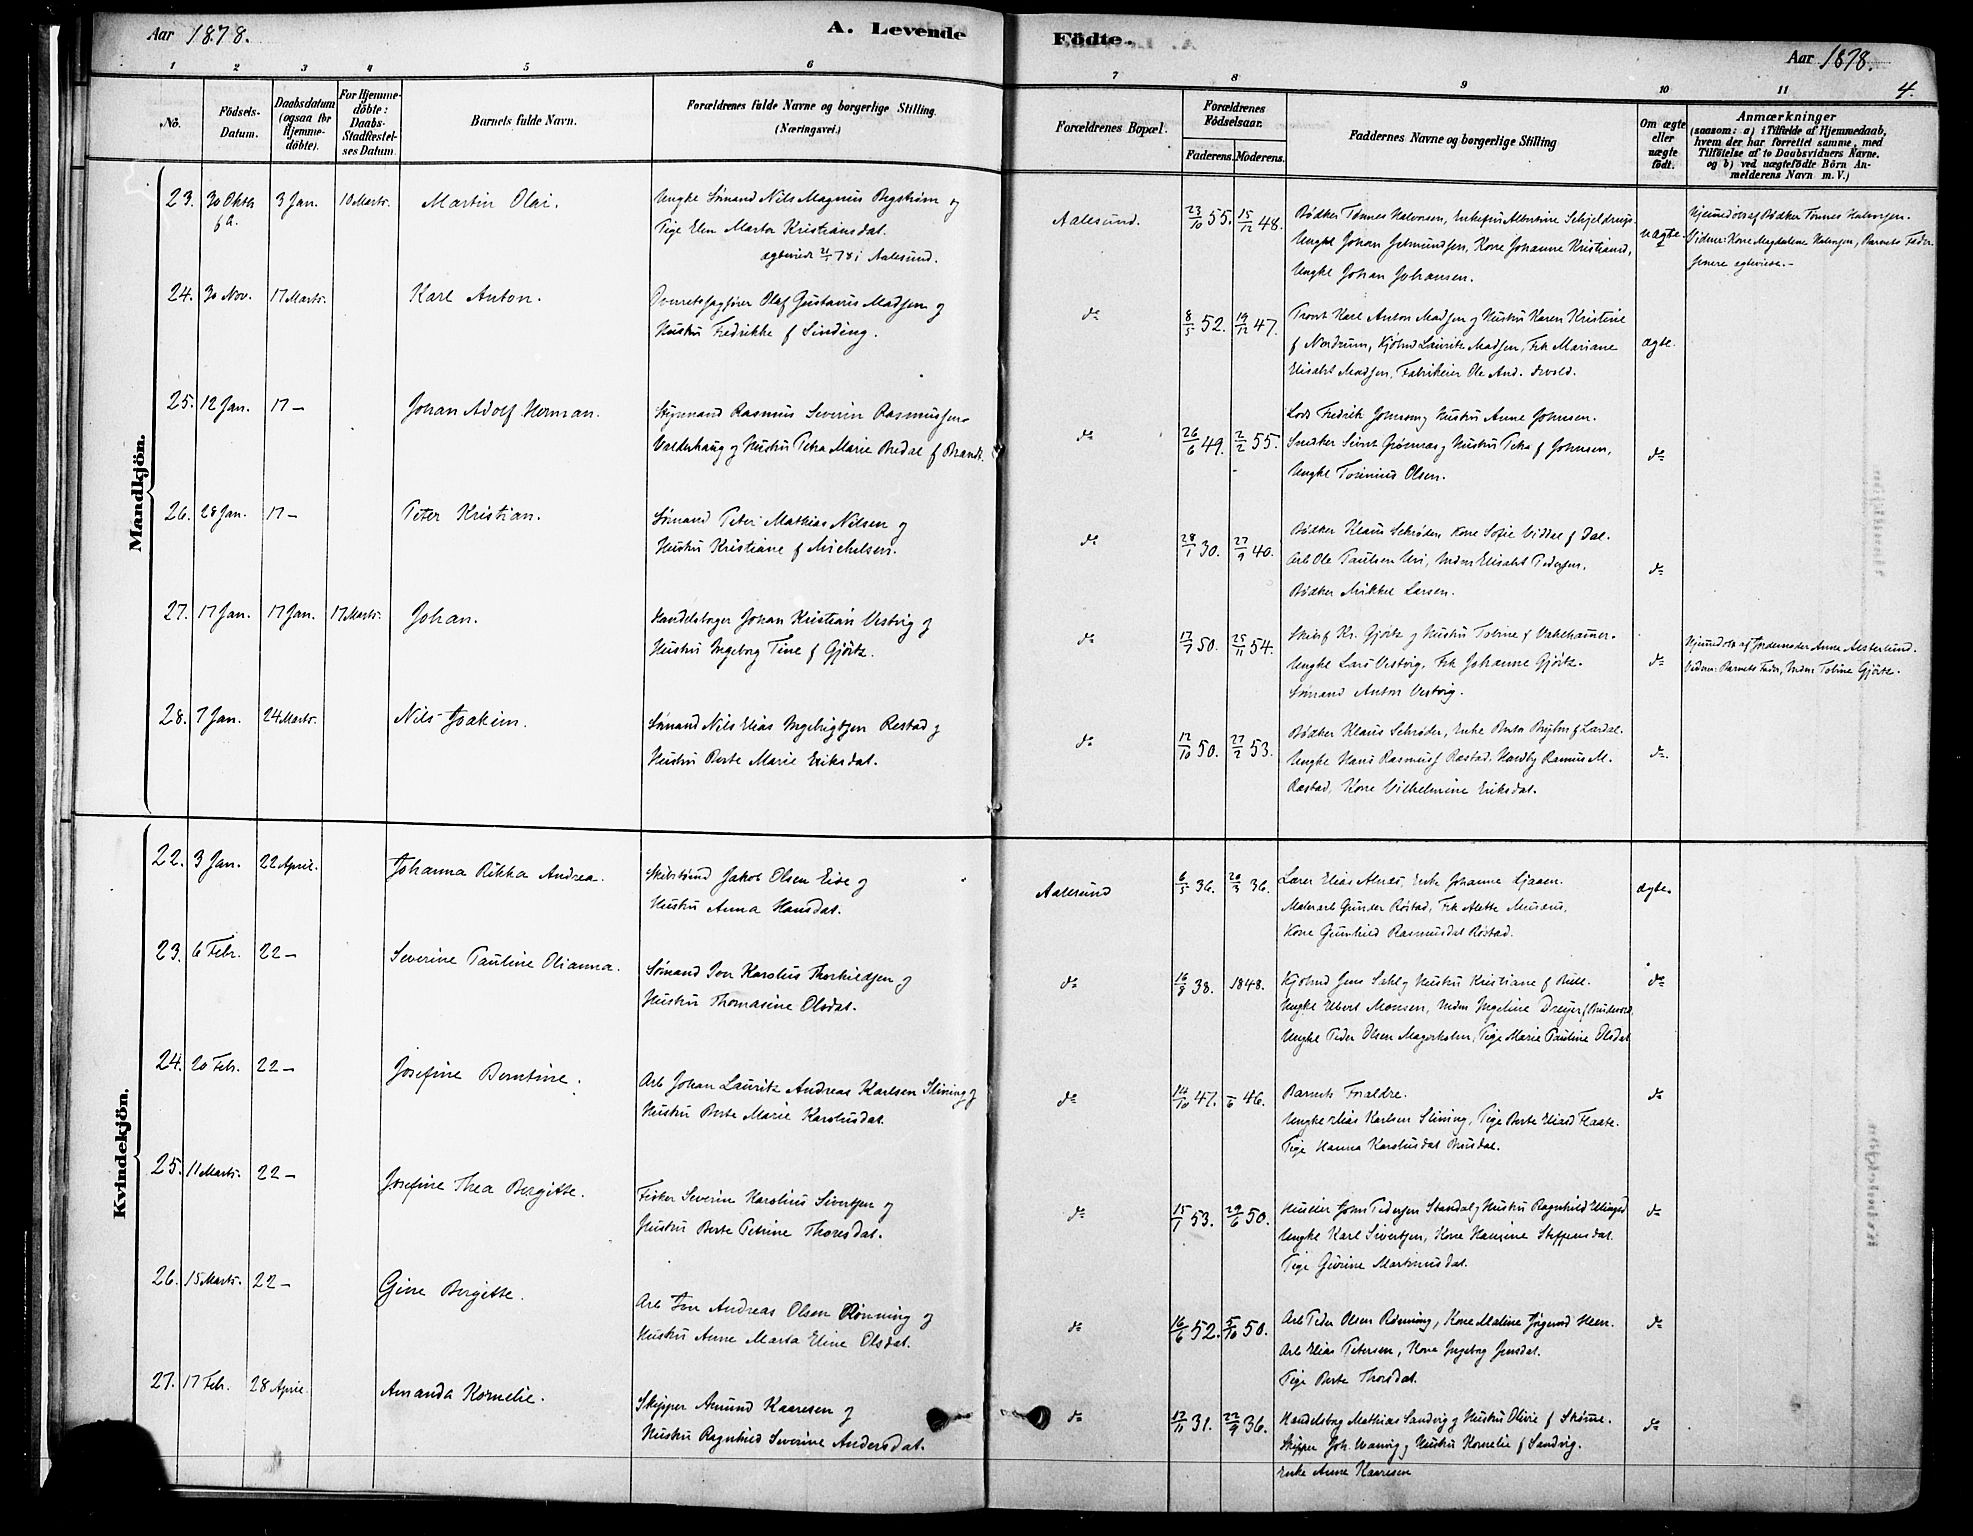 Aar 1878.
A. Levende
Födte.
Aar 1878.
4.
1 2 3 4 5 6 7 8 9 10 11
No.
Födsels-
Datum.
Daabsdatum
(ogsaa for
Hjemme-
döbte).
For Hjemme-
döbte:
Daabs-
Stadfæstel-
ses Datum.
Barnets fulde Navn.
Forældrenes fulde Navne og borgerlige Stilling.
(Næringsvei.)
Forældrenes Bopæl.
Forældrenes
Födselsaar.
Faderens. Moderens.
Faddernes Navne og borgerlige Stilling
Om ægte
eller
uægte
födt.
Anmærkninger
(saasom: a) i Tilfælde af Hjemmedaab,
hvem der har forrettet samme, med
Tilföielse af to Daabsvidners Navne.
og b) ved uægtefödte Börn An-
melderens Navn m. V.)
Mandkjön.
23. 30 Oktbr 3 Jan. 10 Marts. Martin Olai.
Ungke Sømand Nils Magnus Bergstrøm og
Pige Elen Marta Kristiansdat.
ægteviede 2/1 78 i Aalesund.
Aalesund. 23/10 55. 15/12 48.
Bødker Tønnes Halvorsen,
Ungke Johan Kone Johanne
Ungke Johan Johansen.
uægte.
Hjemmedøbt af Bødker Tønnes Halvorsen.
Vidner: Kone Magdalene Halvorsen, Barnets Fader
senere ægteviede.-
24. 30 Nov. 17 Marts. Karl Anton.
Olaf Gustavus Madsen og
Hustru Fredrikke f Sinding.
do 8/5 52. 19/12 47.
Karl Anton Madsen og Hustru Karen Kristine
f Nordrum, Kjøbmd Lauritz Madsen, Frk Mariane
Elisabet Madsen, Fabrikeier Ole And. Devold.
ægte.
25. 12 Jan. 17 - Johan Adolf Herman.
Styrmand Rasmus Severin Rasmussen
Valderhaug og Hustru Petra Marie Bredal f Brandt.
do 26/6 49. 2/2 55.
Lods Fredrik Johnsen og Hustru Anne Johnsen.
Snedker Sivert Grønnæs og Hustru Petra f Johnsen,
Ungke Tormund Olsen.
do
26. 28 Jan. 17 - Peter Kristian.
Sømand Peter Mathias Nilsen og
Hustru Kristiane f Michelsen.
do 28/1 30. 27/9 40.
Bødker Klaus Schrøder, Kone Sofie Viddal f Dal.
Arb Ole Paulsen Uri, Mdm Elisabet Pedersen.
Bødker Mikkel Larsen.
do
27. 17 Jan. 17 Jan. 17 Marts. Johan.
Handelsborger Johan Kristian Vestvig og
Hustru Ingeborg Tine f Gjørtz.
do 17/7 50. 25/11 54.
Kr. Gjørtz og Hustru Tobine f Vattehamer.
Ungke Lars Vestvig, Frk Johanne Gjørtz.
Sømand Anton Vestvig.
do
Hjemmedøbt af Jordemoder Anne Aesterlund.
Vidner: Barnets Fader, Mdm Tobine Gjørtz.
28. 7 Jan. 24 Marts. Nils Joakim.
Sømand Nils Elias Ingebrigtsen Røstad og
Hustru Berte Marie Eriksdat.
do 12/10 50. 27/2 53.
Bødker Klaus Schrøder, Enke Berta f Lærdal.
Ungke Hans Rasmus Røstad, Rasmus M.
Røstad, Kone Vilhelmine Eriksdat.
do.
Kvindekjön.
22. 3 Jan. 22 April. Johanna Rikka Andrea.
Skibstømmd Jakob Olsen Eide og
Hustru Anna Hansdat.
Aalesund 6/5 36. 20/3 36.
Lærer Elias Alnæs, Enke Johanne Gjaaen.
Malerarb Gunder Røstad, Frk Alette Musæus,
Kone Gunhild Rasmusdat Røstad.
ægte.
23. 6 Febr. 22 - Severine Pauline Olianna.
Sømand Iver Karolus Thorkildsen og
Hustru Thomasine Olsdat.
do 16/8 38. 1848.
Kjøbmd Jens Dahl og Hustru Kristiane f Bull.
Ungke Elbert Monsen, Mdm Ingeline Dreyer f
Ungke Peder Olsen Magerholm, Pige Marie Pauline Olsdat
do
24. 20 Febr. 22 - Josefine Berntine.
Arb Johan Lauritz Andreas Karlsen Slining og
Hustru Berte Marie Karolusdat.
do 14/10 47. 1/6 46.
Barnets Forældre.
Ungke Elias Karlsen Slining, Pige Berte Eliasd Flaate.
Pige Hanna Karolusdat Brusdal.
do
25. 11 Marts. 22 - Josefine Thea Bergitte.
Fisker Severin Karolius Sivertsen og
Hustru Berte Petrine Thoresdat.
do 15/1 53. 29/6 50.
Huseier John Pedersen Standal og Hustru Ragnhild Ellingsd
Ungke Karl Sivertsen, Kone Hansine Steffensdat.
Pige Gurine Martinusdat.
do
26. 15 Marts. 22 - Gine Bergitte.
Arb Iver Andreas Olsen Rønning og
Hustru Anne Marta Eline Olsdat.
do 16/6 52. 5/10 50.
Arb Peder Olsen Rønning, Kone Maline Heen.
Arb Elias Petersen, Kone Ingeborg Jensdat.
Pige Berte Thorsdat.
do
27. 17 Febr. 28 April. Amanda Kornelie.
Skipper Amund Kaaresen og
Hustru Ragnhild Severine Andersdat.
do 17/11 31. 22/9 36.
Handelsborg Mathias Sandvig og Hustru Olivie f Skorne.
Skipper Joh. Wærvig og Hustru Kornelie f Sandvig.
Enke Anne Kaaresen
do